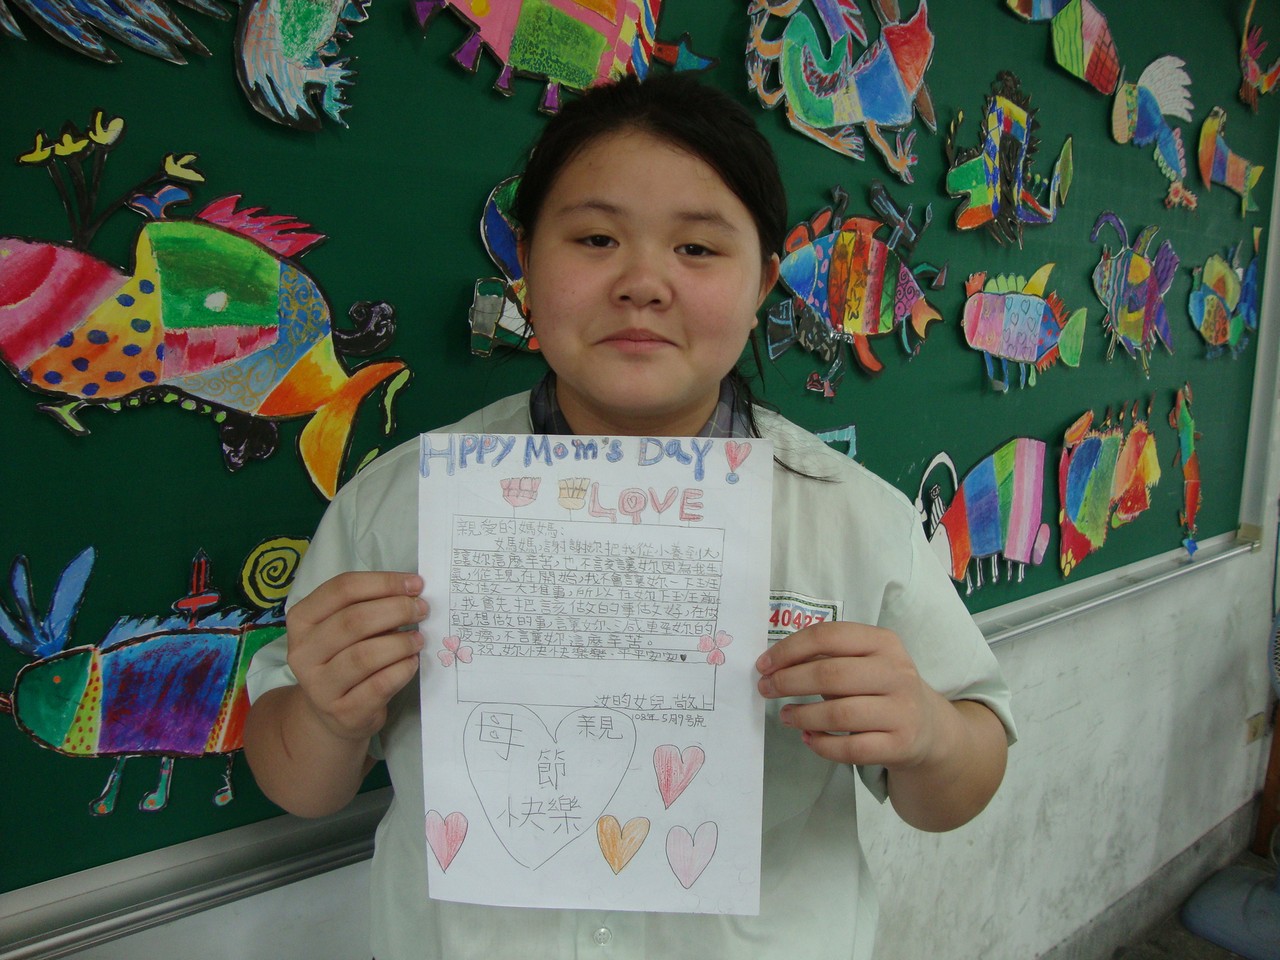 HPPY MOM'S DAY!
LOVE
親愛的媽媽：
媽媽，謝謝妳把我從小養到大
讓妳這麼辛苦，也不該讓妳因為我生
氣，從現在開始，我不會讓妳一下班
就做一大堆事，所以在妳下班前
，我會先把該做的事做好，在做
自己想做的事，讓妳
疲勞，不讓妳這麼辛苦。
祝 妳快快樂樂，平平安安♥
汝的女兒 敬上
108年5月9號
母親
節
快樂
40427